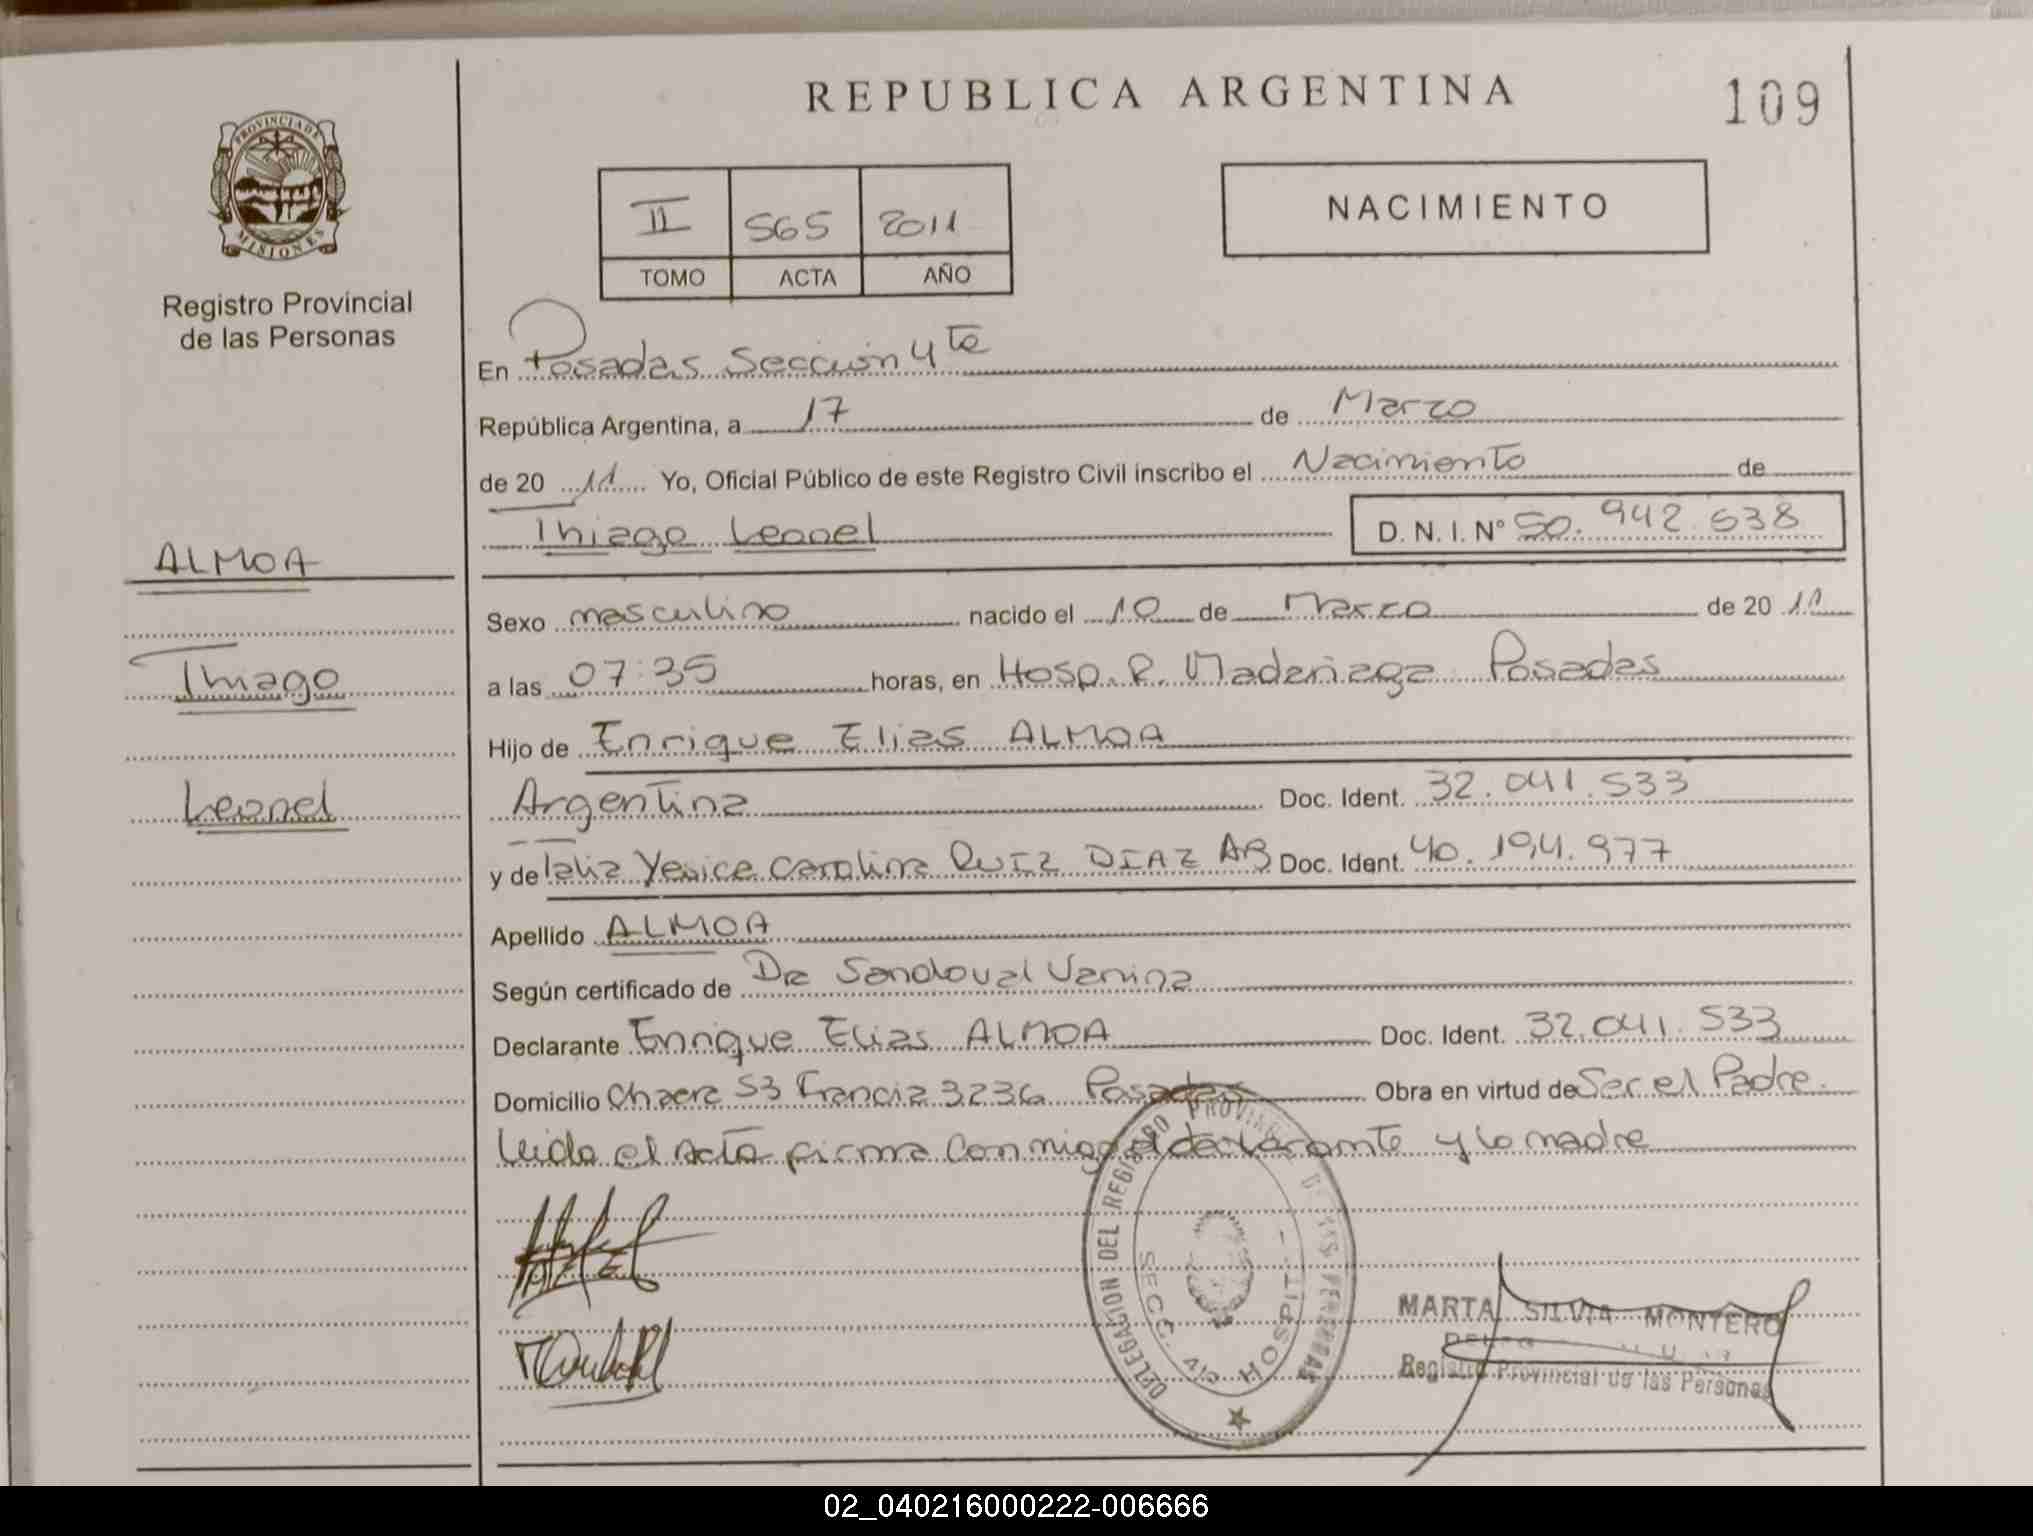 REPUBLICA ARGENTINA
109
PROVINCIA DE
MISIONES
Registro Provincial
de las Personas
II 565 2011
TOMO ACTA AÑO
NACIMIENTO
En Posadas Sección 4ta
República Argentina, a 17 de Marzo
de 20 11 Yo, Oficial Público de este Registro Civil inscribo el Nacimiento de
Thiago Leonel D. N. I. N° 50.942.538
ALMOA
Thiago
Leonel
Sexo masculino nacido el 10 de Marzo de 20 11
a las 07:35 horas, en Hosp. R. Madariaga Posadas
Hijo de Enrique Elias ALMOA
Argentina Doc. Ident. 32.041.533
y de Talia Yenice Carolina RUIZ DIAZ AR Doc. Ident. 40.194.977
Apellido ALMOA
Según certificado de Dra Sandoval Vanina
Declarante Enrique Elias ALMOA Doc. Ident. 32.041.533
Domicilio Chacra 53 Francia 3236 Posadas Obra en virtud de Ser el Padre.
Leida el Acta firma conmigo el declarante y la madre
DELEGACION DEL REGISTRO PROVINCIAL DE LAS PERSONAS
SECC. 4ta HOSPIT
MARTA SILVIA MONTERO
Registro Provincial de las Personas
02_040216000222-006666